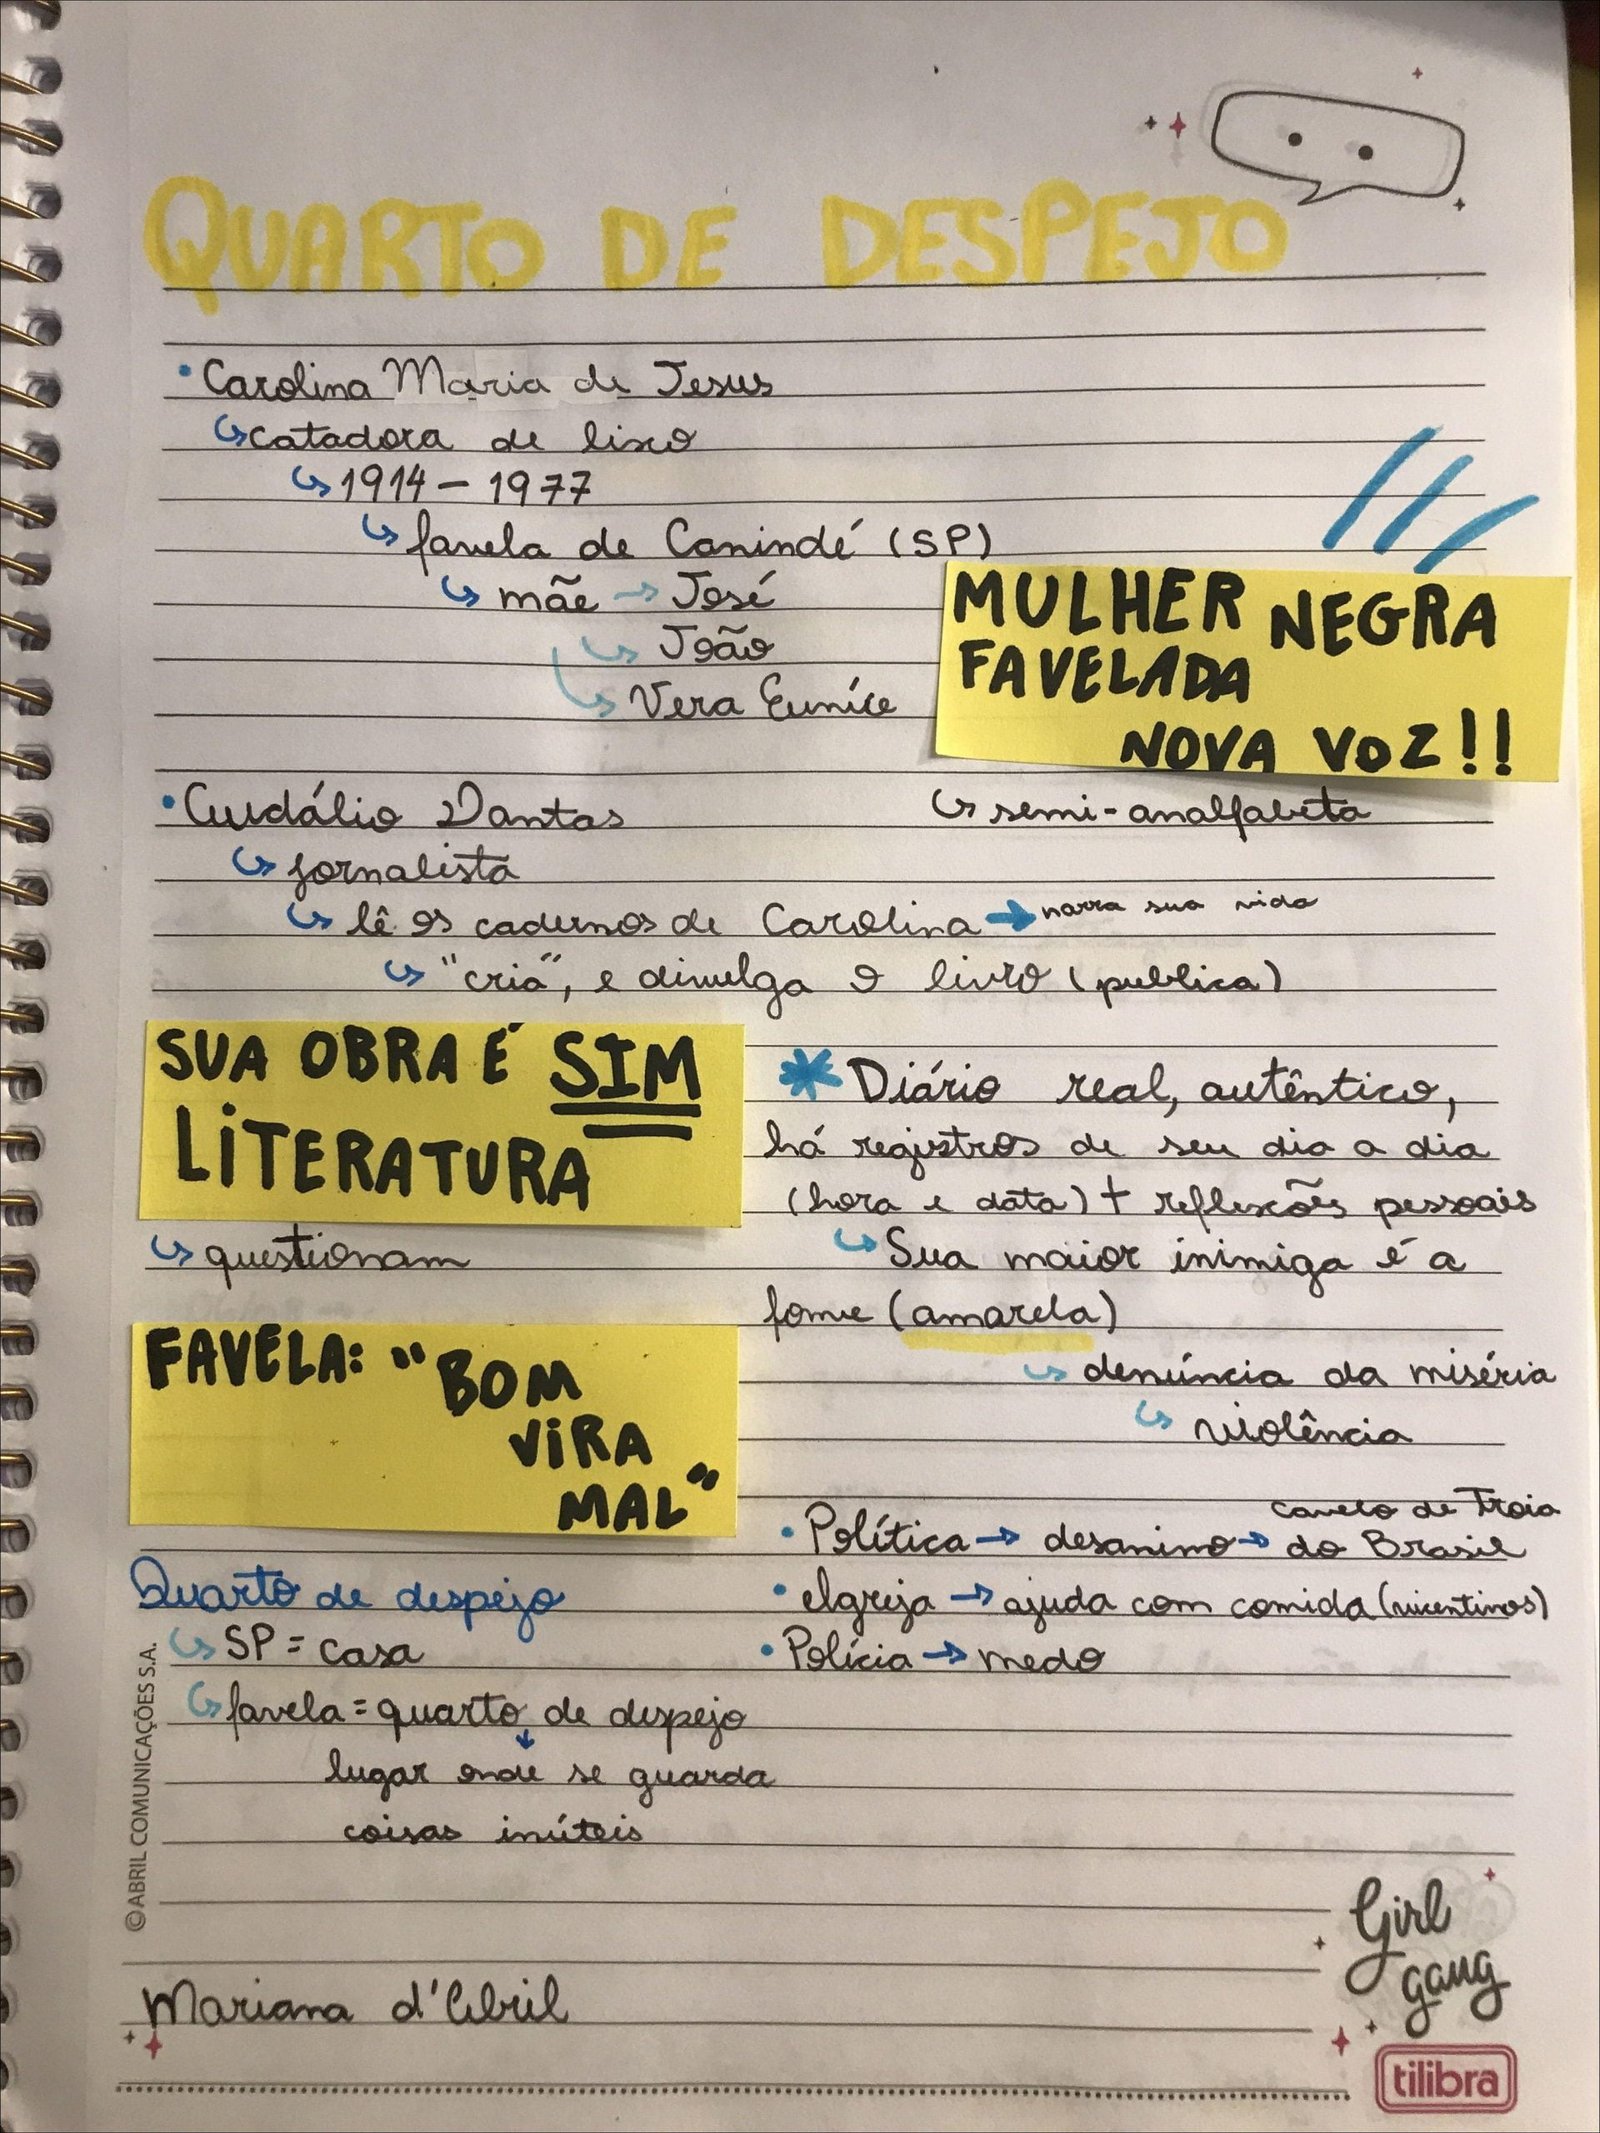 QUARTO DE DESPEJO
• Carolina Maria de Jesus
↳ catadora de lixo
↳ 1914 - 1977
↳ favela de Canindé (SP)
↳ mãe → José
↳ João
↳ Vera Eunice
MULHER NEGRA
FAVELADA
NOVA VOZ!!
↳ semi-analfabeta
• Audálio Dantas
↳ jornalista
↳ lê os cadernos de Carolina → narra sua vida
↳ "cria", e divulga o livro (publica)
SUA OBRA É SIM
LITERATURA
↳ questionam
* Diário real, autêntico,
há registros de seu dia a dia
(hora e data) + reflexões pessoais
↳ Sua maior inimiga é a
fome (amarela)
↳ denúncia da miséria
↳ violência
FAVELA: "BOM
VIRA
MAL"
• Política → desanimo → cavalo de Troia
do Brasil
• Igreja → ajuda com comida (vicentinos)
• Polícia → medo
Quarto de despejo
↳ SP = casa
↳ favela = quarto de despejo
↓
lugar onde se guarda
coisas inúteis
©ABRIL COMUNICAÇÕES S.A.
Mariana d'Abril
Girl
gang
tilibra